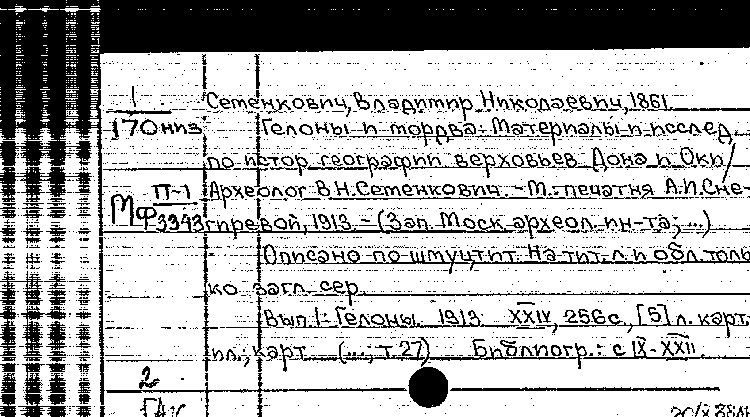 1
Сетенкович, Владимир Николаевич, 1861
170 низ
Гелоны и мордва: Материалы и исслед.
по истор. географии верховьев Дона и Оки /
П-1
Мф 3343
Археолог В.Н.Сетенкович. - М.: печатня А.И.Сне-
гиревой, 1913. - (Зап. Моск. археол. ин-та; ...)
Описано по шмуцтит. На тит. л. и обл. толь
ко загл. сер.
Вып. 1: Гелоны. 1913. XXIV, 256 с., [5] л. карт.
ил.; карт. (...; т. 27) Библиогр.: с. IX-XXII.
2